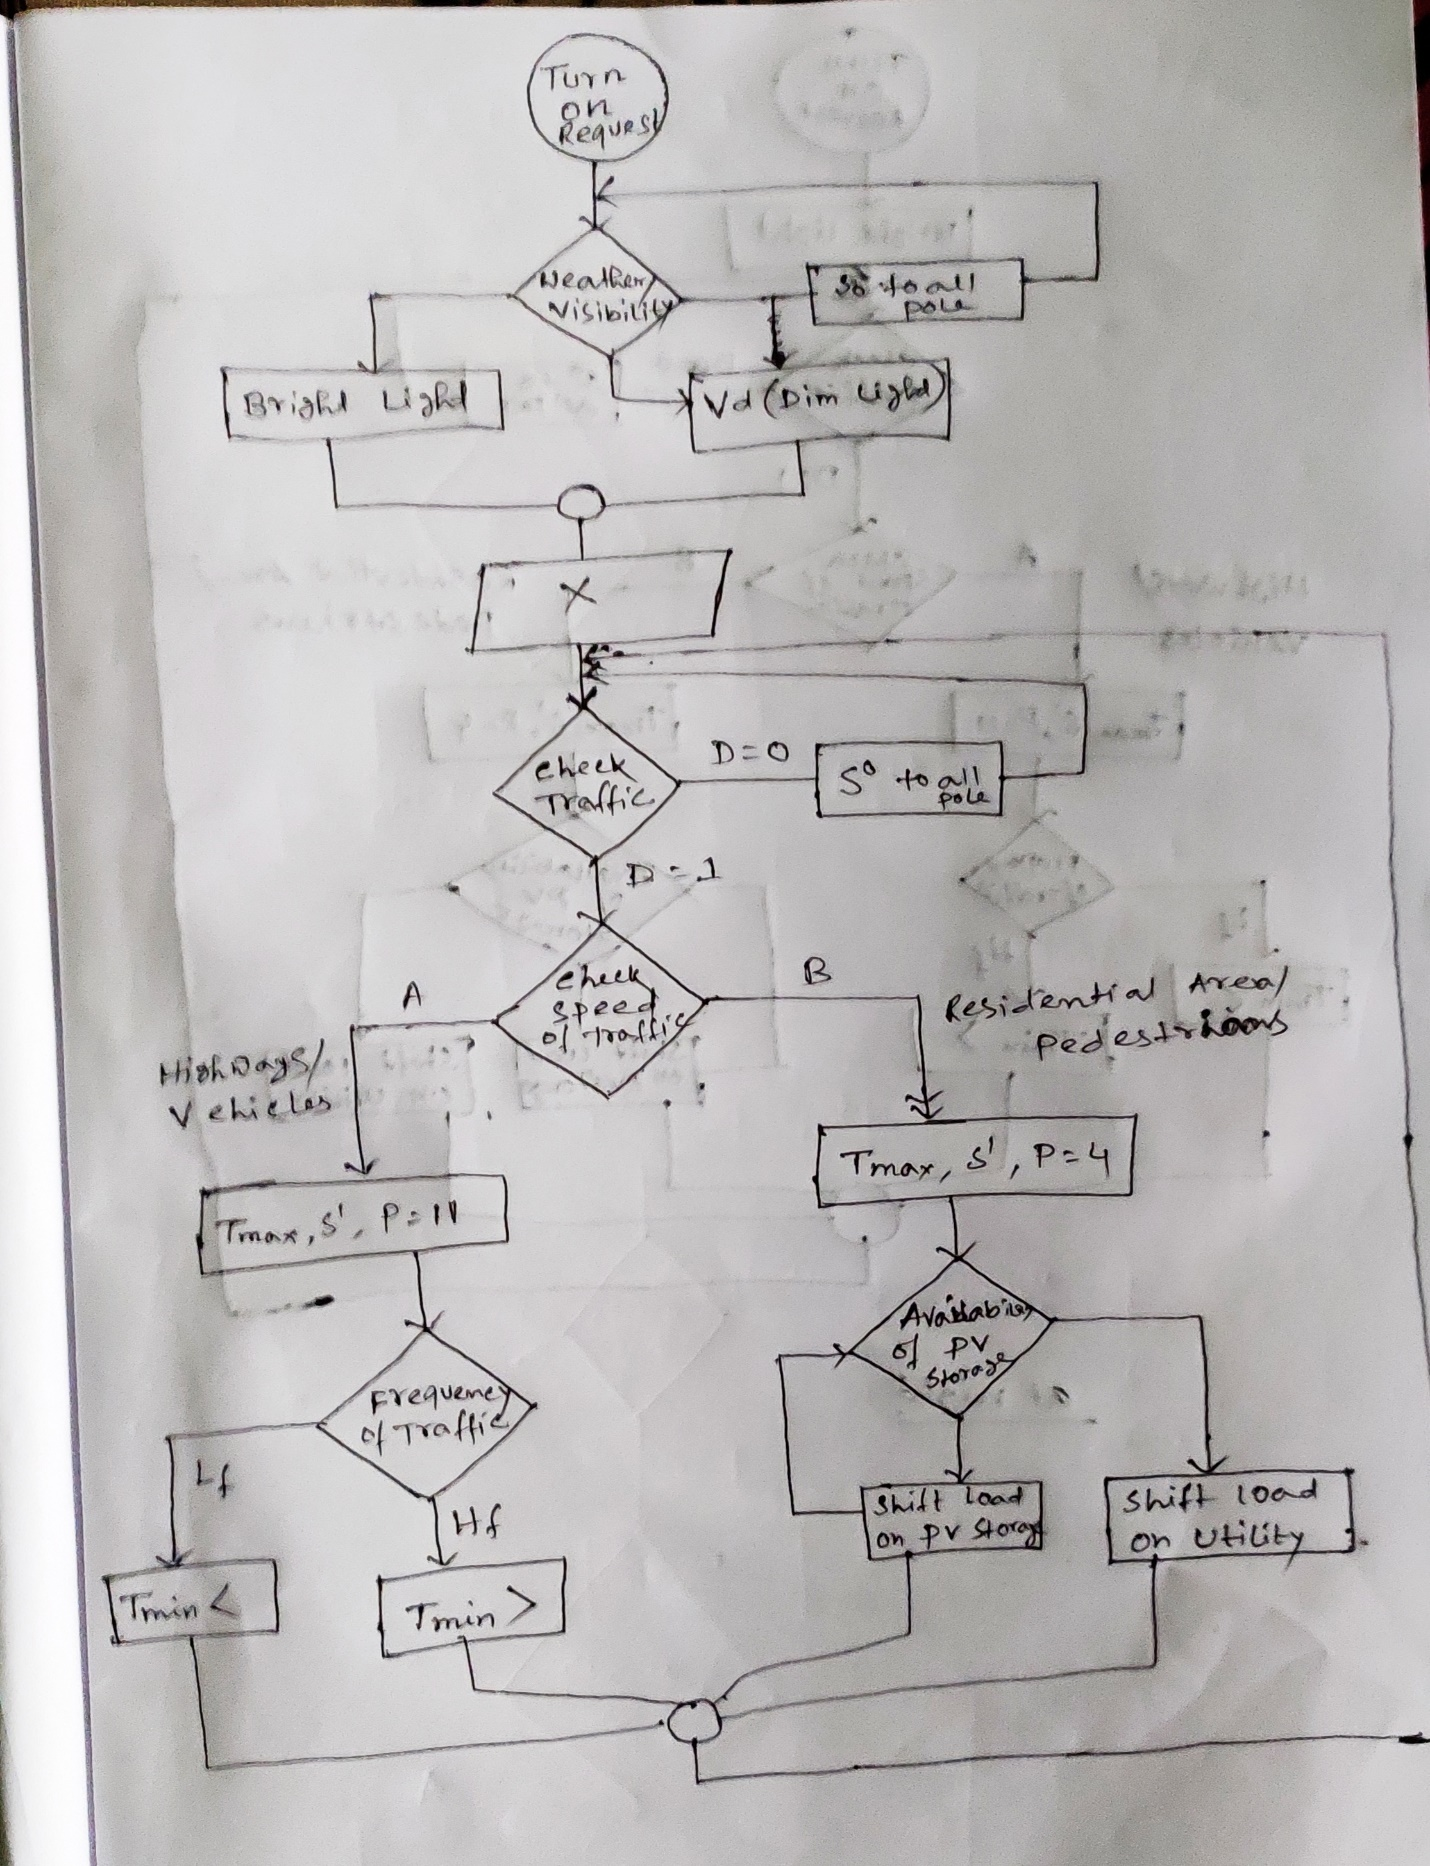 Turn
on
Request
Weather
Visibility
S0 to all
pole
Bright Light
Vd (Dim Light)
X
check
Traffic
D=0
S⁰ to all
pole
D=1
check
speed
of Traffic
A
B
Highways/
Vehicles
Residential Area/
Pedestrians
Tmax, S', P=11
Tmax, S', P=4
Frequency
of Traffic
Availability
of PV
Storage
Lf
Hf
Shift load
on PV Storage
Shift load
on Utility
Tmin <
Tmin >